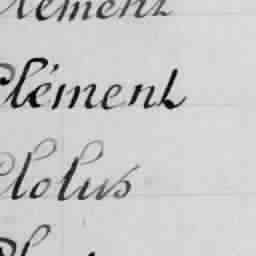 Clément
Clément
Clolus